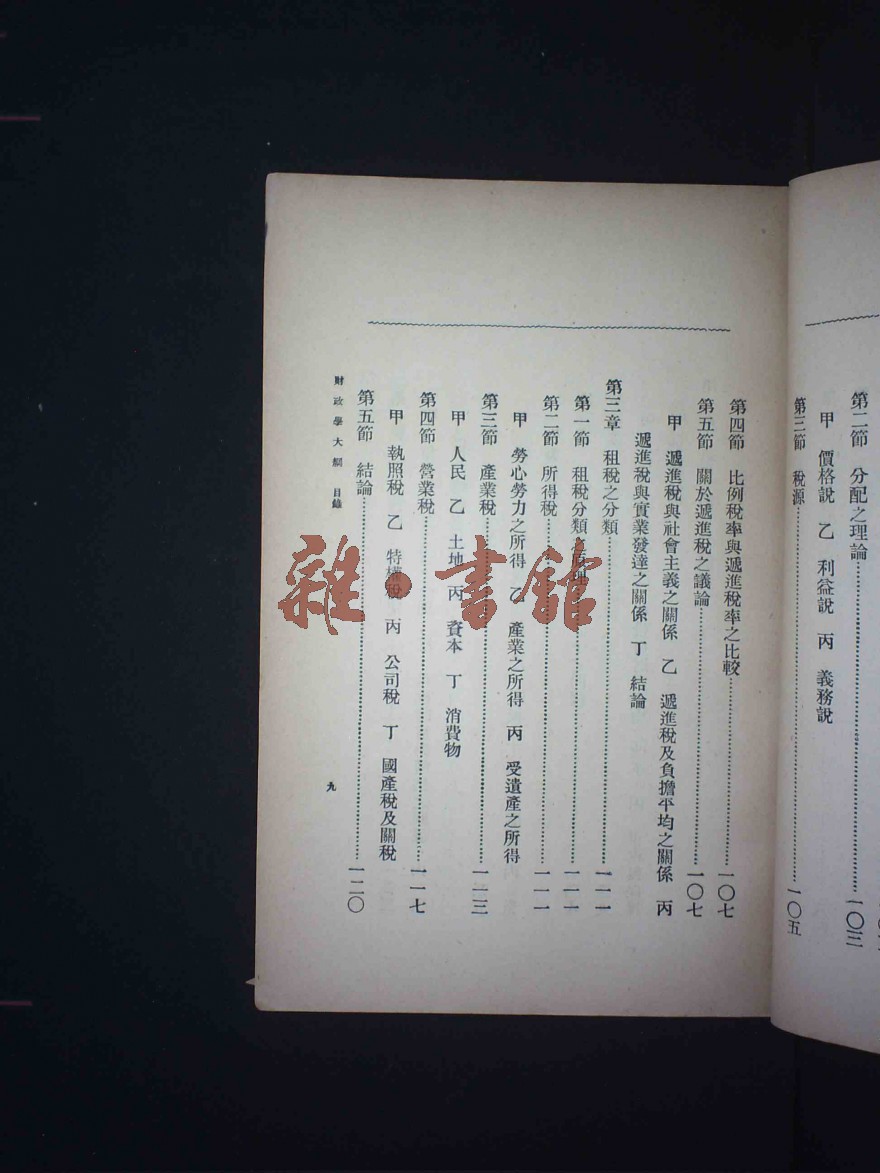 第二節　分配之理論……一〇三
甲　價格說　乙　利益說　丙　義務說
第三節　稅源……一〇五
第四節　比例稅率與遞進稅率之比較……一〇七
第五節　關於遞進稅之議論……一〇七
甲　遞進稅與社會主義之關係　乙　遞進稅及負擔平均之關係　丙
遞進稅與實業發達之關係　丁　結論
第三章　租稅之分類……一一一
第一節　租稅分類之原理……一一一
第二節　所得稅……一一一
甲　勞心勞力之所得　乙　產業之所得　丙　受遺產之所得
第三節　產業稅……一一三
甲　人民　乙　土地　丙　資本　丁　消費物
第四節　營業稅……一一七
甲　執照稅　乙　特權稅　丙　公司稅　丁　國產稅及關稅
第五節　結論……一二〇
財政學大綱　目錄
九
雜·書館